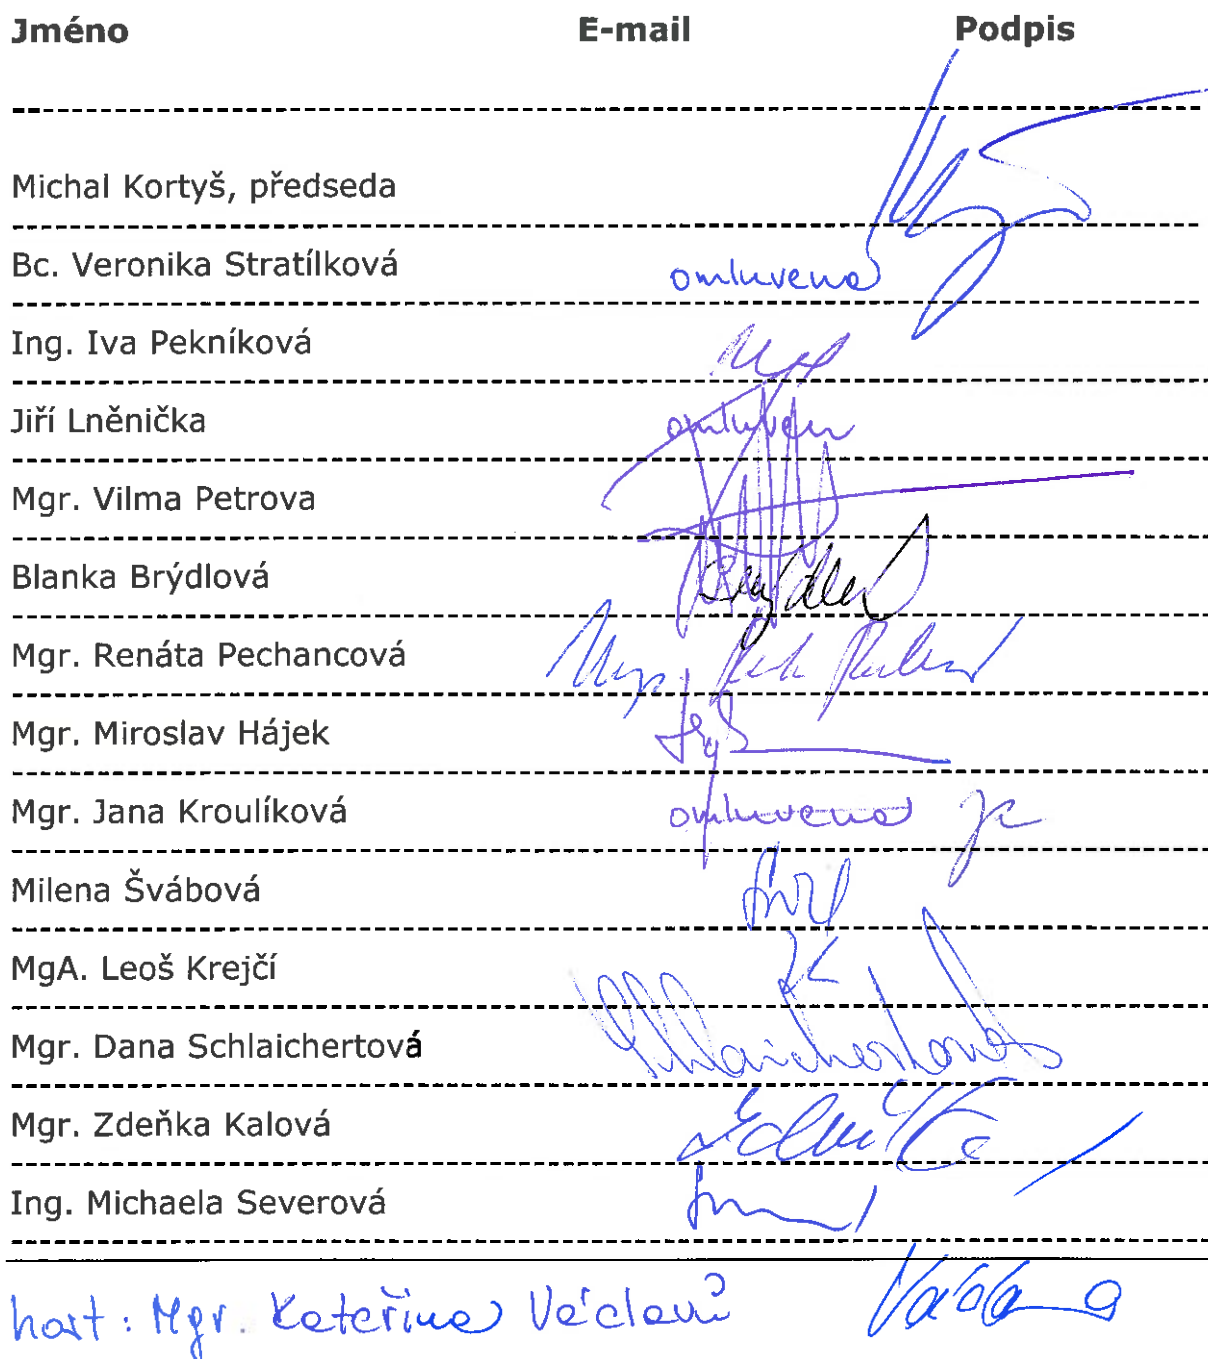 Jméno E-mail Podpis
Michal Kortyš, předseda
Bc. Veronika Stratílková omluvena
Ing. Iva Pekníková
Jiří Lněnička omluven
Mgr. Vilma Petrova
Blanka Brýdlová
Mgr. Renáta Pechancová
Mgr. Miroslav Hájek
Mgr. Jana Kroulíková omluvena
Milena Švábová
MgA. Leoš Krejčí
Mgr. Dana Schlaichertová Schlaichertová
Mgr. Zdeňka Kalová
Ing. Michaela Severová
host: Mgr. Kateřina Václavů